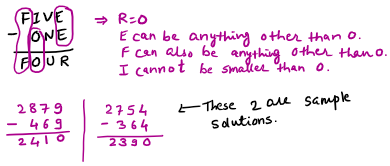 FIVE
- ONE
FOUR
⇒ R=0
E can be anything other than 0.
F can also be anything other than 0.
I cannot be smaller than 0.
2879
- 469
2410
2754
- 364
2390
← These 2 are sample
solutions.